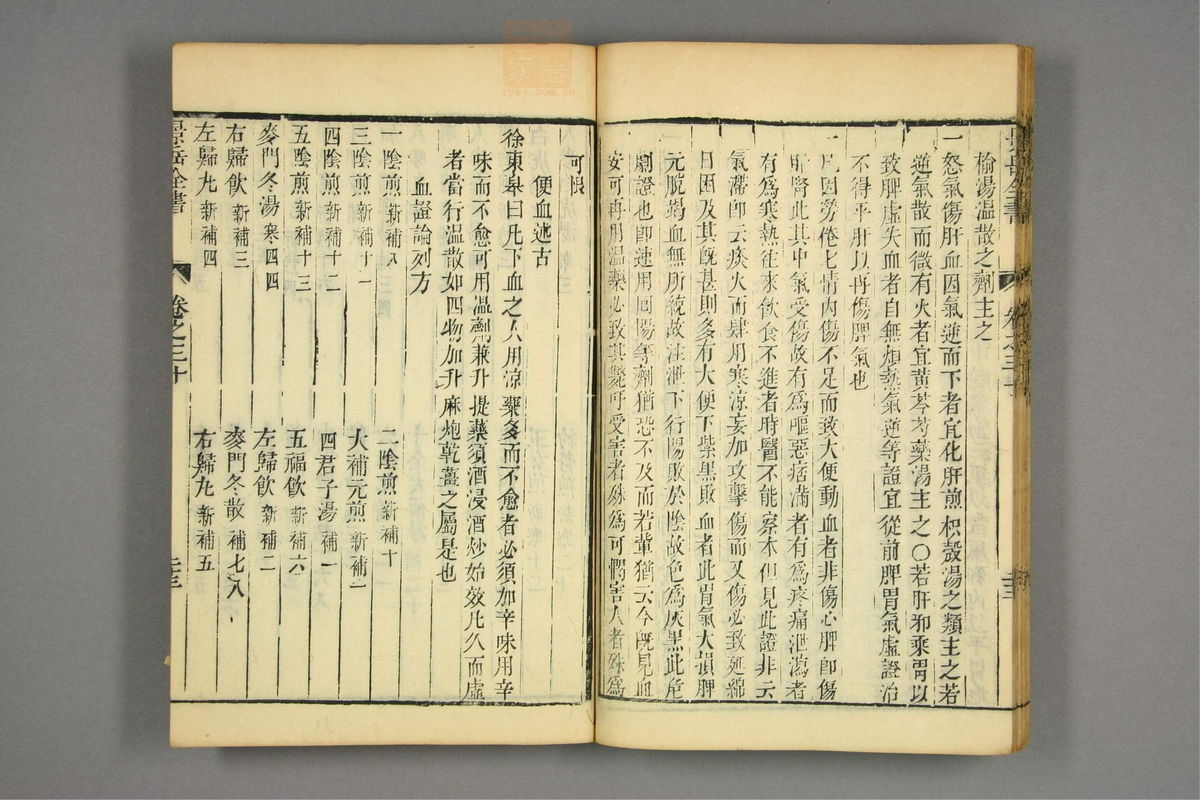 榆湯溫散之劑主之
一怒氣傷肝血因氣逆而下者宜化肝煎枳殼湯之類主之若
逆氣散而微有火者宜黃芩芍藥湯主之〇若肝邪乘胃以
致脾虛失血者自無煩熱氣逆等證宜從前脾胃氣虛證治
不得平肝以再傷脾氣也
一凡因勞倦七情內傷不足而致大便動血者非傷心脾即傷
肝腎此其中氣受傷故有爲嘔惡痞滿者有爲疼痛泄瀉者
有爲寒熱往來飲食不進者時醫不能察本但見此證非云
氣滯即云痰火而肆用寒涼妄加攻擊傷而又傷必致延綿
日困及其旣甚則多有大便下紫黑敗血者此胃氣大損脾
元脫竭血無所統故注泄下行陽敗於陰故色爲灰黑此危
劇證也即速用回陽等劑猶恐不及而若輩猶云今旣見血
安可再用溫藥必致其斃吁受害者殊爲可憫害人者殊爲
可恨
便血述古
徐東皋曰凡下血之人用涼藥多而不愈者必須加辛味用辛
味而不愈可用溫劑兼升提藥須酒浸酒炒始效凡久而虛
者當行溫散如四物加升麻炮乾薑之屬是也
血證論列方
一陰煎 新補八 二陰煎 新補十
三陰煎 新補十一 大補元煎 新補一
四陰煎 新補十二 四君子湯 補一
五陰煎 新補十三 五福飲 新補六
麥門冬湯 寒四四 左歸飲 新補二
右歸飲 新補三 麥門冬散 補七八
左歸丸 新補四 右歸丸 新補五
景岳全書 卷之三十